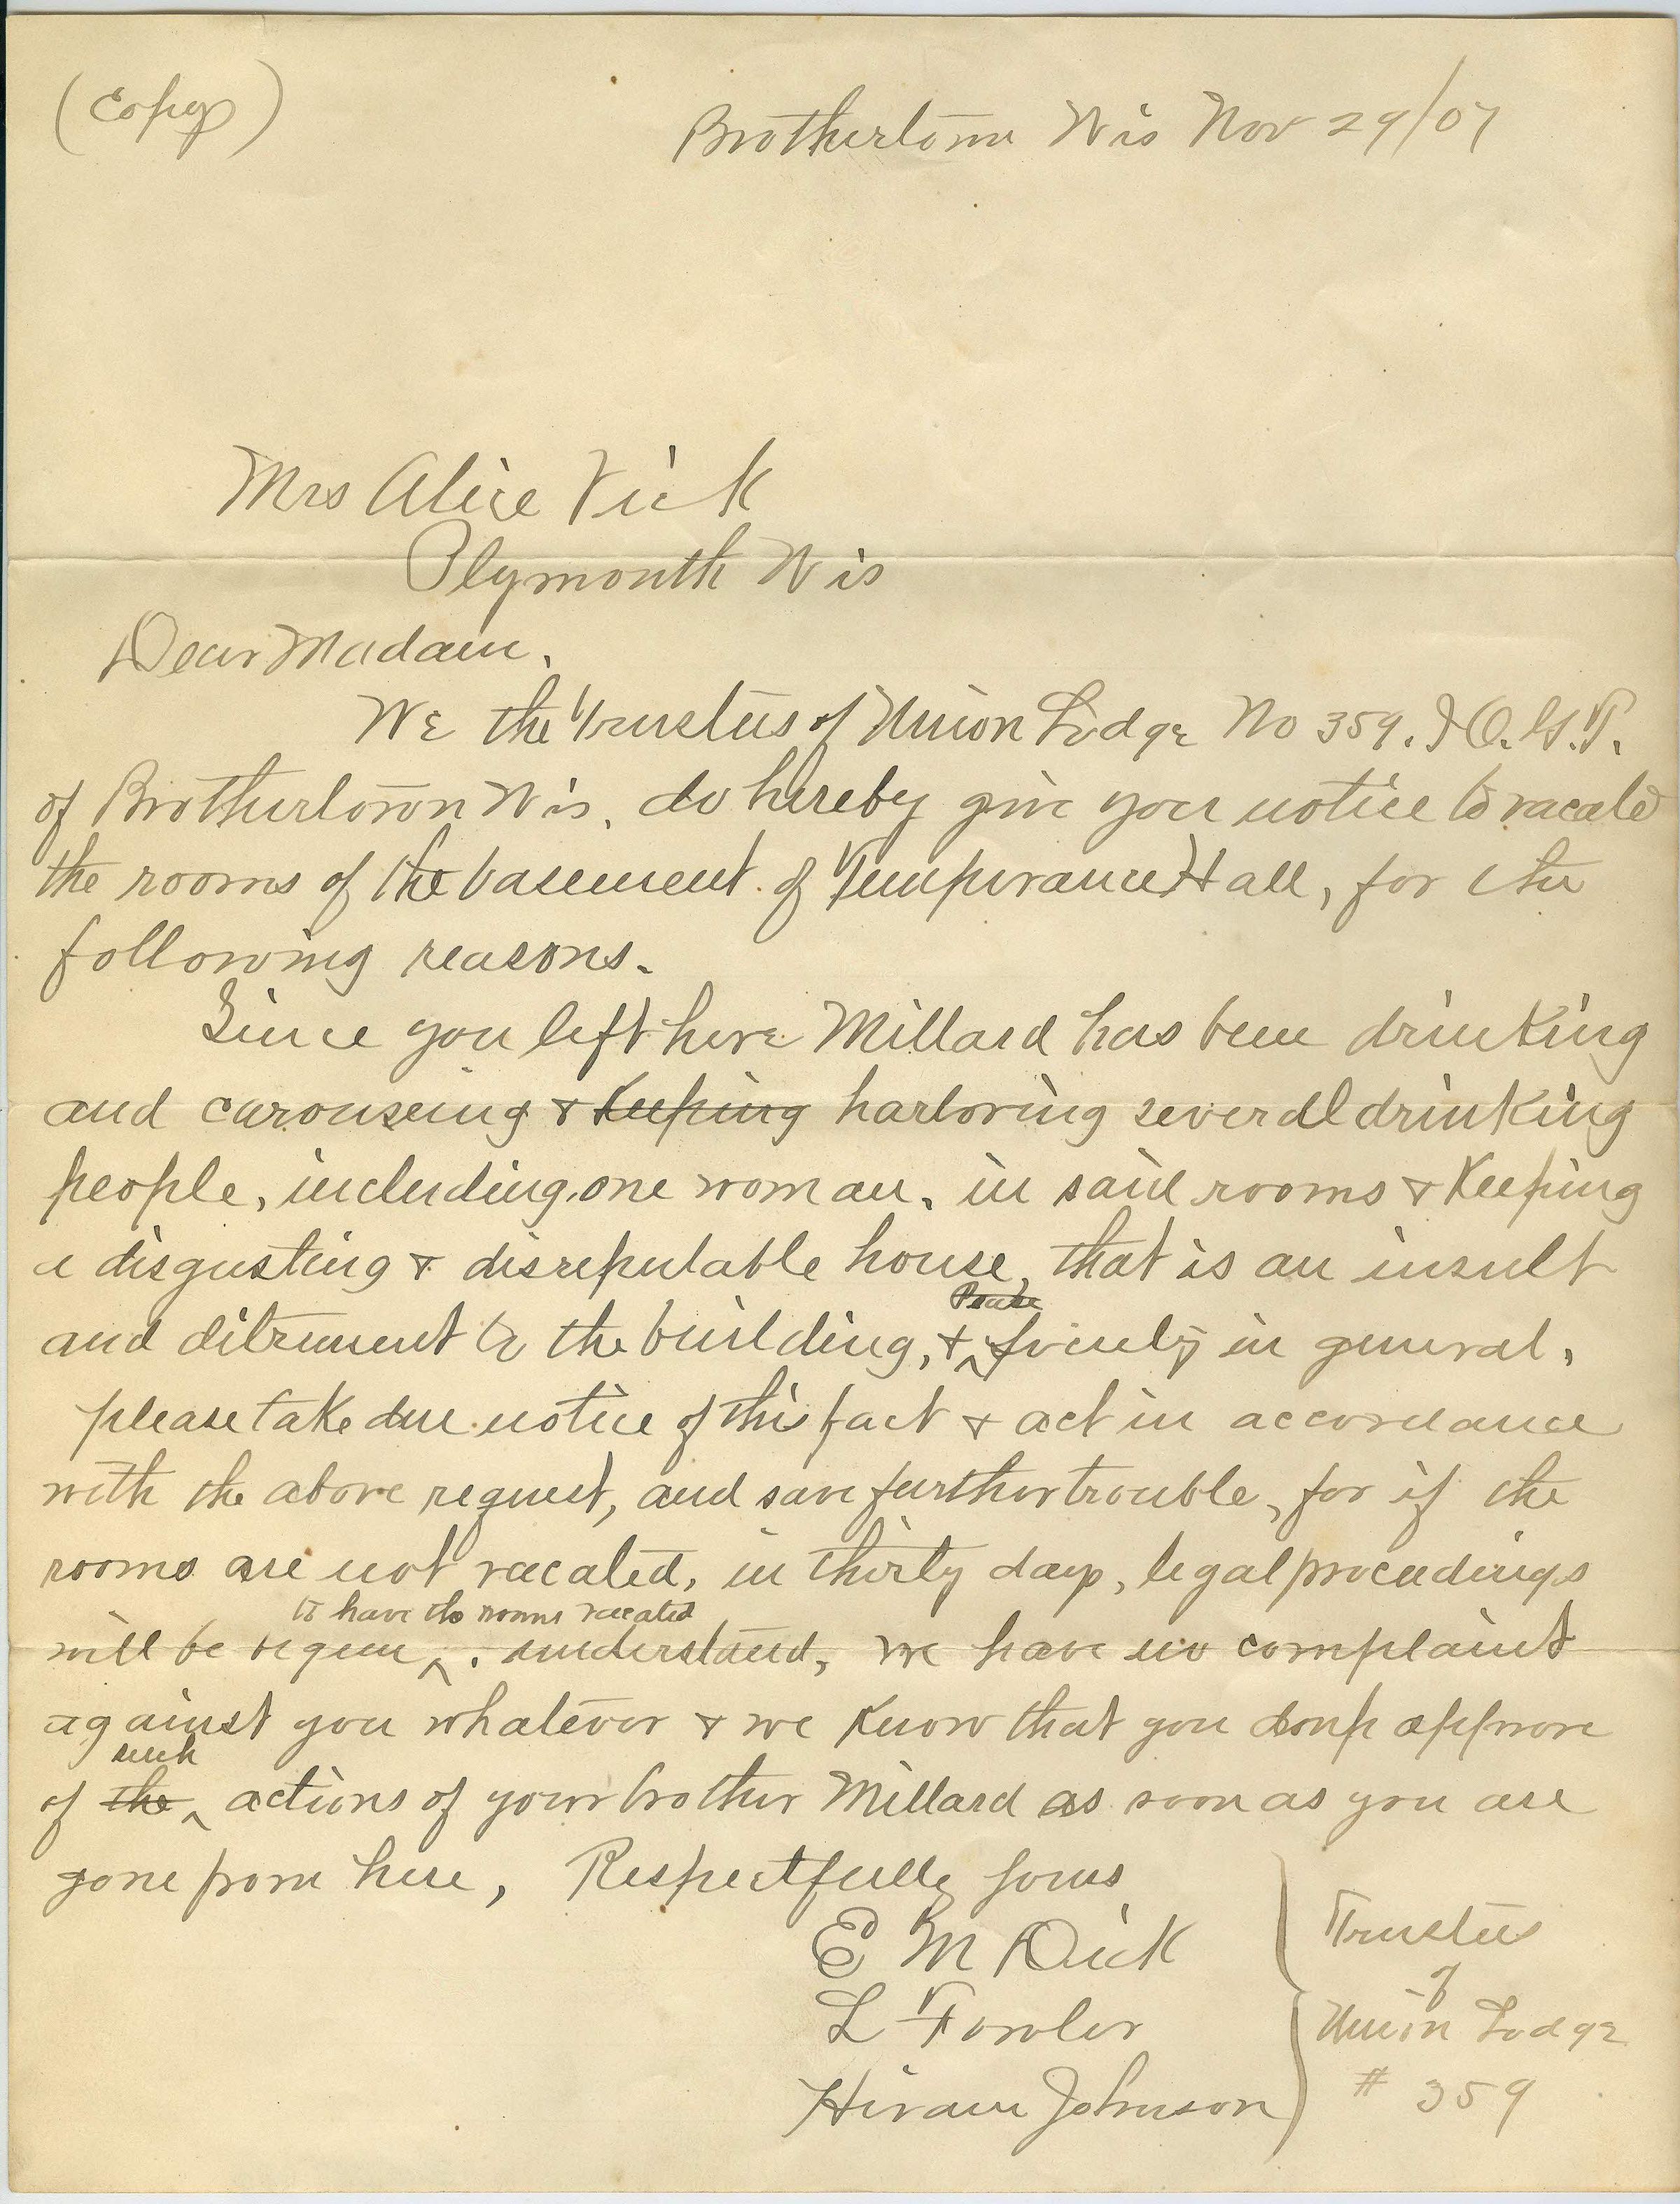 (Copy)
Brothertown Wis Nov 29/07
Mrs Alice Vick
Plymouth Wis
Dear Madam.
We the Trustees of Union Lodge No 359. I O. G. T.
of Brothertown Wis. do hereby give you notice to vacate
the rooms of the basement of Temperance Hall, for the
following reasons.
Since you left here Millard has been drinking
and carouseing & Keeping harboring several drinking
people, including one woman, in said rooms & Keeping
a disgusting & disreputable house, that is an insult
and ditriment to the building, & society in general,
please take due notice of this fact & act in accordance
with the above request, and save further trouble, for if the
rooms are not vacated, in thirty days, legal proceedings
to have the rooms vacated
will be begun ^. understand, we have no complaint
against you whatever & we Know that you dont approve
such
of the ^ actions of your brother Millard as soon as you are
gone from here, Respectfully yours
E M Dick
L Fowler
Hiram Johnson
Trustees
of
Union Lodge
# 359